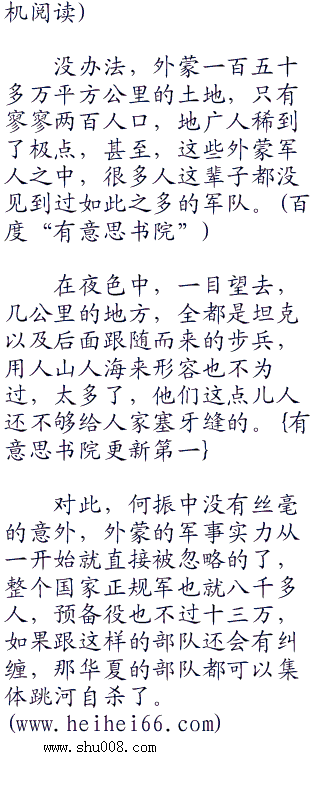 机阅读)
没办法，外蒙一百五十
多万平方公里的土地，只有
寥寥两百人口，地广人稀到
了极点，甚至，这些外蒙军
人之中，很多人这辈子都没
见到过如此之多的军队。(百
度“有意思书院”)
在夜色中，一目望去，
几公里的地方，全都是坦克
以及后面跟随而来的步兵，
用人山人海来形容也不为
过，太多了，他们这点儿人
还不够给人家塞牙缝的。{有
意思书院更新第一}
对此，何振中没有丝毫
的意外，外蒙的军事实力从
一开始就直接被忽略的了，
整个国家正规军也就八千多
人，预备役也不过十三万，
如果跟这样的部队还会有纠
缠，那华夏的部队都可以集
体跳河自杀了。
(www.heihei66.com)
www.shu008.com